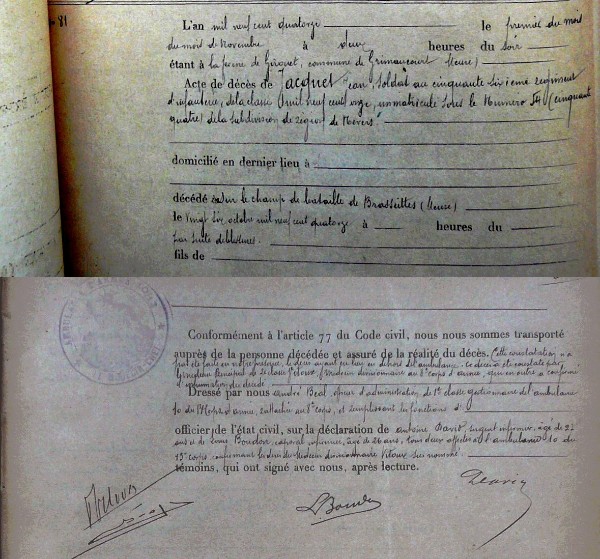 81
L'an mil neuf cent quatorze le premier du mois
du mois de Novembre à deux heures du soir
étant à la ferme de Girouet, commune de Grimaucourt (Meuse)
Acte de décès de Jacquet Jean, soldat au cinquante sixième régiment
d'infanterie, de la classe mil neuf cent onze, immatriculé sous le Numéro 54 (cinquante
quatre) de la subdivision de région de Nevers.
domicilié en dernier lieu à
décédé sur le champ de bataille de Brasseittes (Meuse)
le vingt six octobre mil neuf cent quatorze à heures du
par suite de blessures.
fils de
Conformément à l'article 77 du Code civil, nous nous sommes transporté
auprès de la personne décédée et assuré de la réalité du décès. Cette constatation n'a
pas été faite en notre présence, le décès ayant eu lieu en dehors de l'ambulance. Le décès a été constaté par
Médecin divisionnaire au 8e corps d'armée, qui en outre a confirmé
du décédé
Dressé par nous André Béal, officier d'administration de 1re classe gestionnaire de l'ambulance
10 du 13e Corps d'armée, rattachée au 8e corps, et remplissant les fonctions d'
officier de l'état civil, sur la déclaration de Antoine David, sergent infirmier, âgé de 22
ans et de Boudon, caporal infirmier, âgé de 26 ans, tous deux affectés à l'ambulance 10 du
13e corps, confirmant le dire du Médecin divisionnaire Vitoux sus nommé.
témoins, qui ont signé avec nous, après lecture.
Vitoux
Béal
Boudon
David